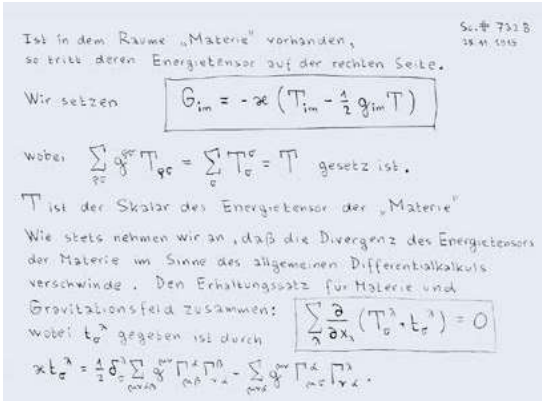 Sc. # 732 B
28 11 1915
Ist in dem Raume „Materie" vorhanden,
so tritt deren Energietensor auf der rechten Seite.
Wir setzen G_im = -ϰ (T_im - ½ g_im T)
wobei ∑_ρσ g^ρσ T_ρσ = ∑_σ T_σ^σ = T gesetz ist.
T ist der Skalar des Energietensor der „Materie"
Wie stets nehmen wir an, daß die Divergenz des Energietensors
der Materie im Sinne des allgemeinen Differentialkalkuls
verschwinde. Den Erhaltungssatz für Materie und
Gravitationsfeld zusammen: ∑_λ ∂/∂x_λ (T_σ^λ + t_σ^λ) = 0
wobei t_σ^λ gegeben ist durch
ϰ t_σ^λ = ½ δ_σ^λ ∑_μναβ g^μν Γ_μβ^α Γ_να^β - ∑_μνα g^μν Γ_μσ^α Γ_να^λ.